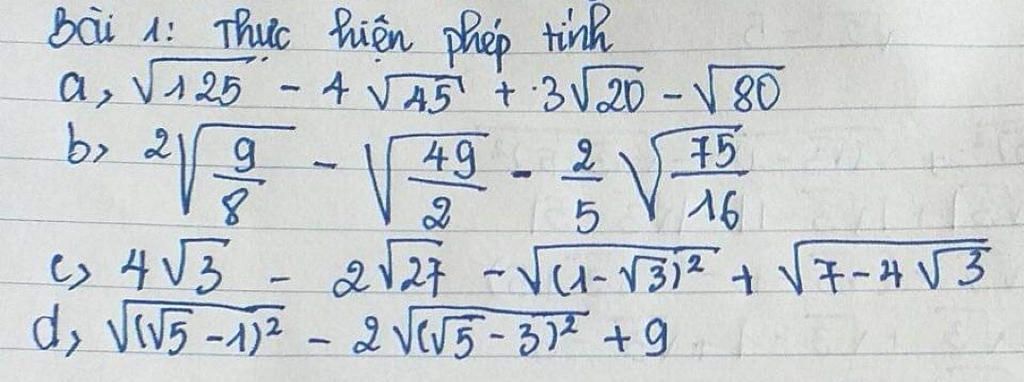 Bài 1: Thực hiện phép tính
a, √125 - 4√45 + 3√20 - √80
b) 2√(9/8) - √(49/2) - 2/5 √(75/16)
c) 4√3 - 2√27 - √((1-√3)²) + √(7-4√3)
d, √((√5-1)²) - 2√((√5-3)²) + 9